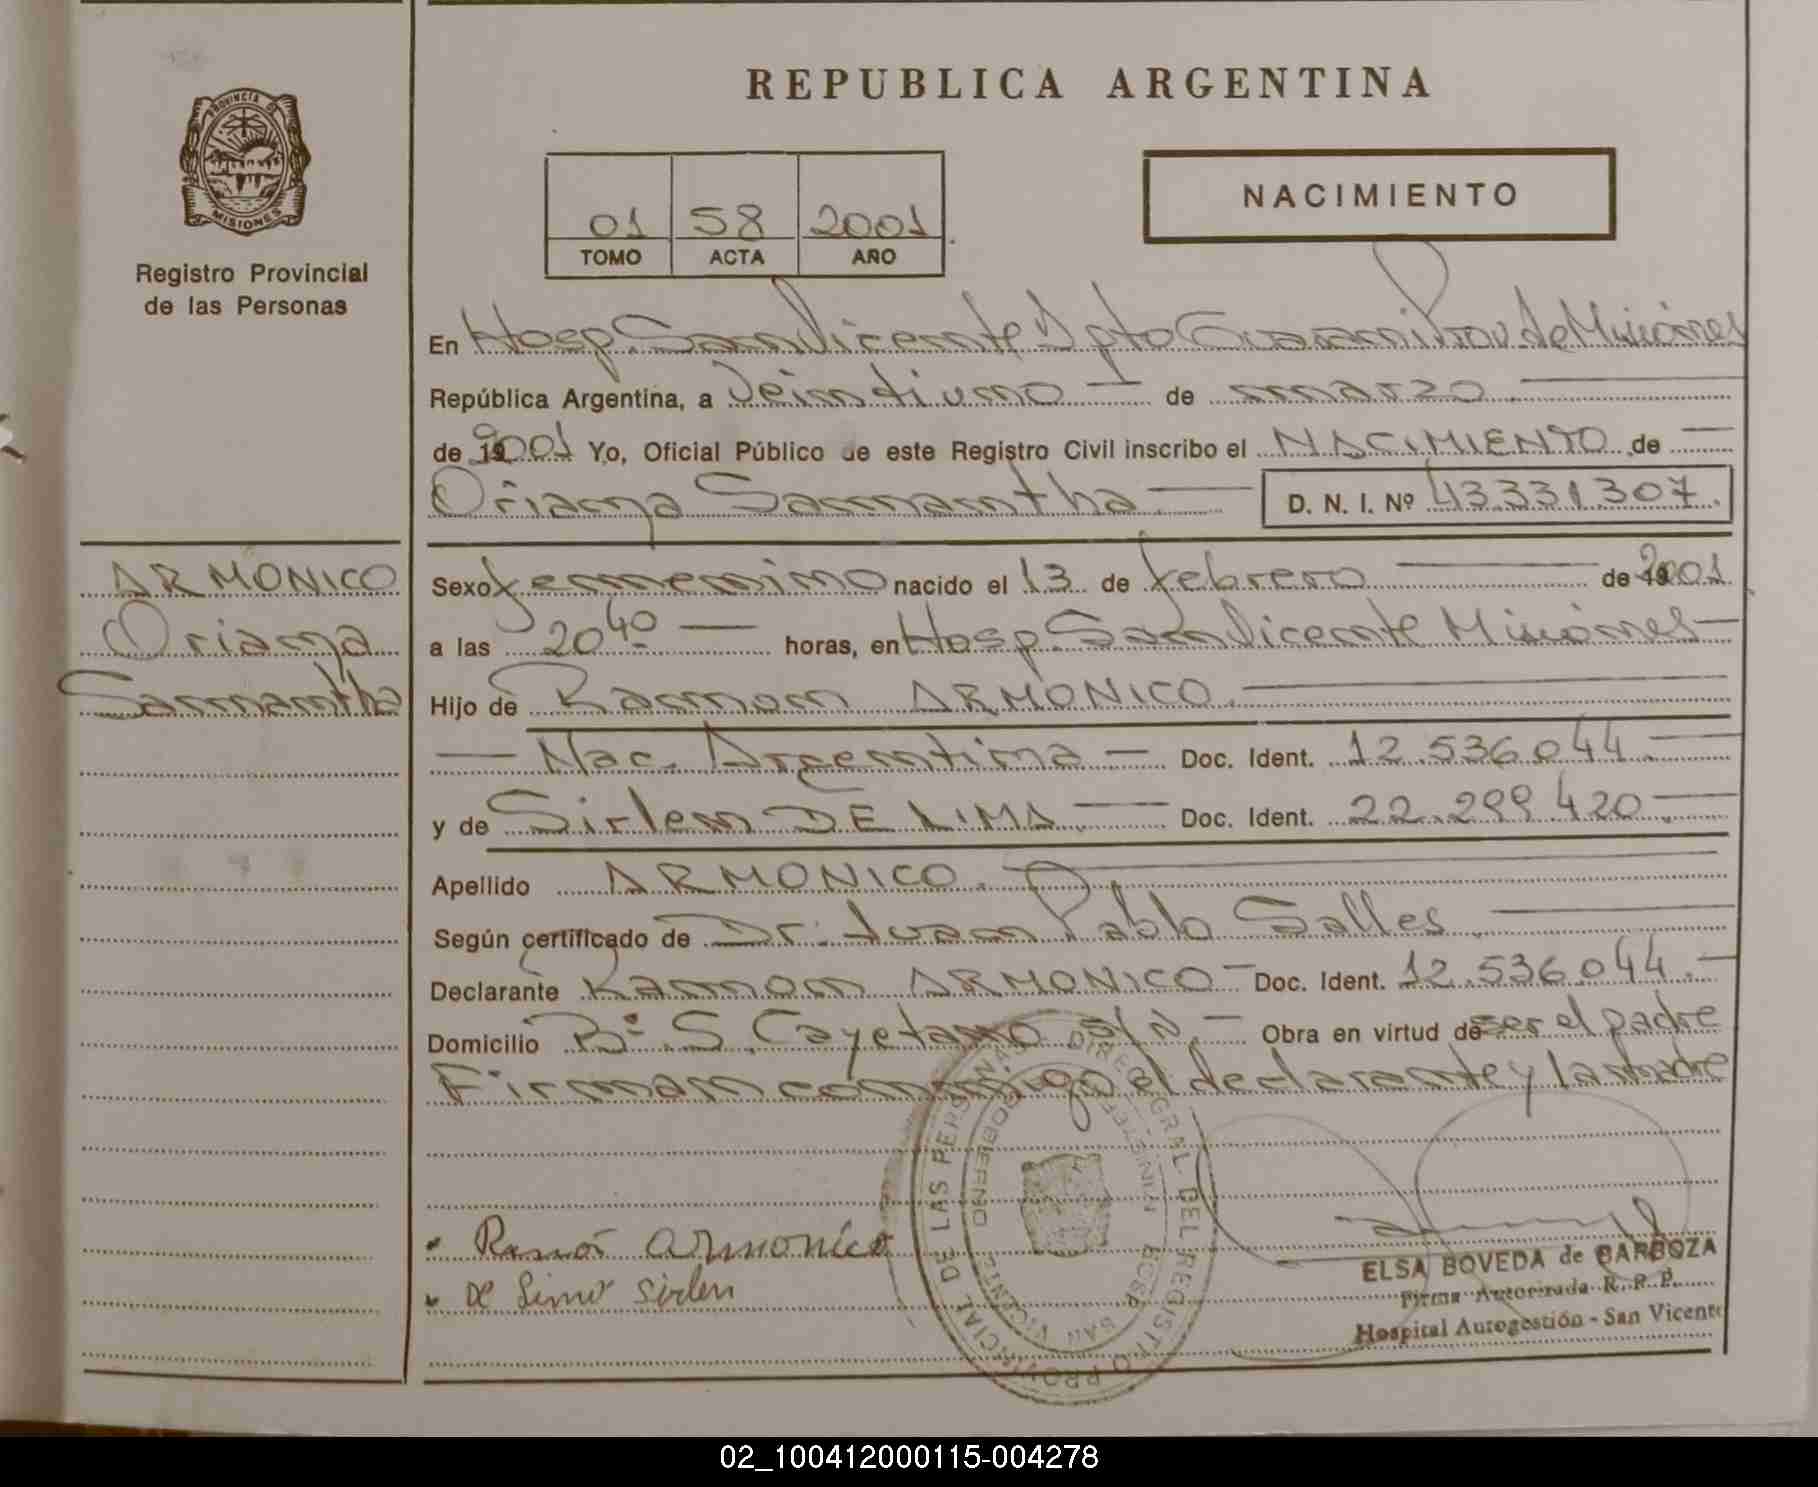 REPUBLICA ARGENTINA
PROVINCIA DE
MISIONES
Registro Provincial
de las Personas
01 58 2001
TOMO ACTA AÑO
NACIMIENTO
En Hosp. San Vicente Dpto Guarani Prov. de Misiones
República Argentina, a Veintiuno — de marzo
de 2001 Yo, Oficial Público de este Registro Civil inscribo el NACIMIENTO de
Oriana Sammantha D. N. I. Nº 43.331.307.
ARMONICO
Oriana
Sammantha
Sexo femenino nacido el 13 de febrero de 2001
a las 20 40 — horas, en Hosp San Vicente Misiones
Hijo de Ramon ARMONICO.
— Nac. Argentina — Doc. Ident. 12.536.044.
y de Sirlen DE LIMA Doc. Ident. 22.299.420.
Apellido ARMONICO.
Según certificado de Dr. Juan Pablo Salles.
Declarante Ramon ARMONICO — Doc. Ident. 12.536.044.
Domicilio Bº S. Cayetano S/N. — Obra en virtud de ser el padre
Firman conmigo el declarante y la madre
Ramón Armonico
De Lima Sirlen
PROVINCIAL DE LAS PERSONAS
DIREC. GRAL DEL REGISTRO
SAN VICENTE
ELSA BOVEDA de BARBOZA
Firma Autorizada R. P. P.
Hospital Autogestión - San Vicente
02_100412000115-004278